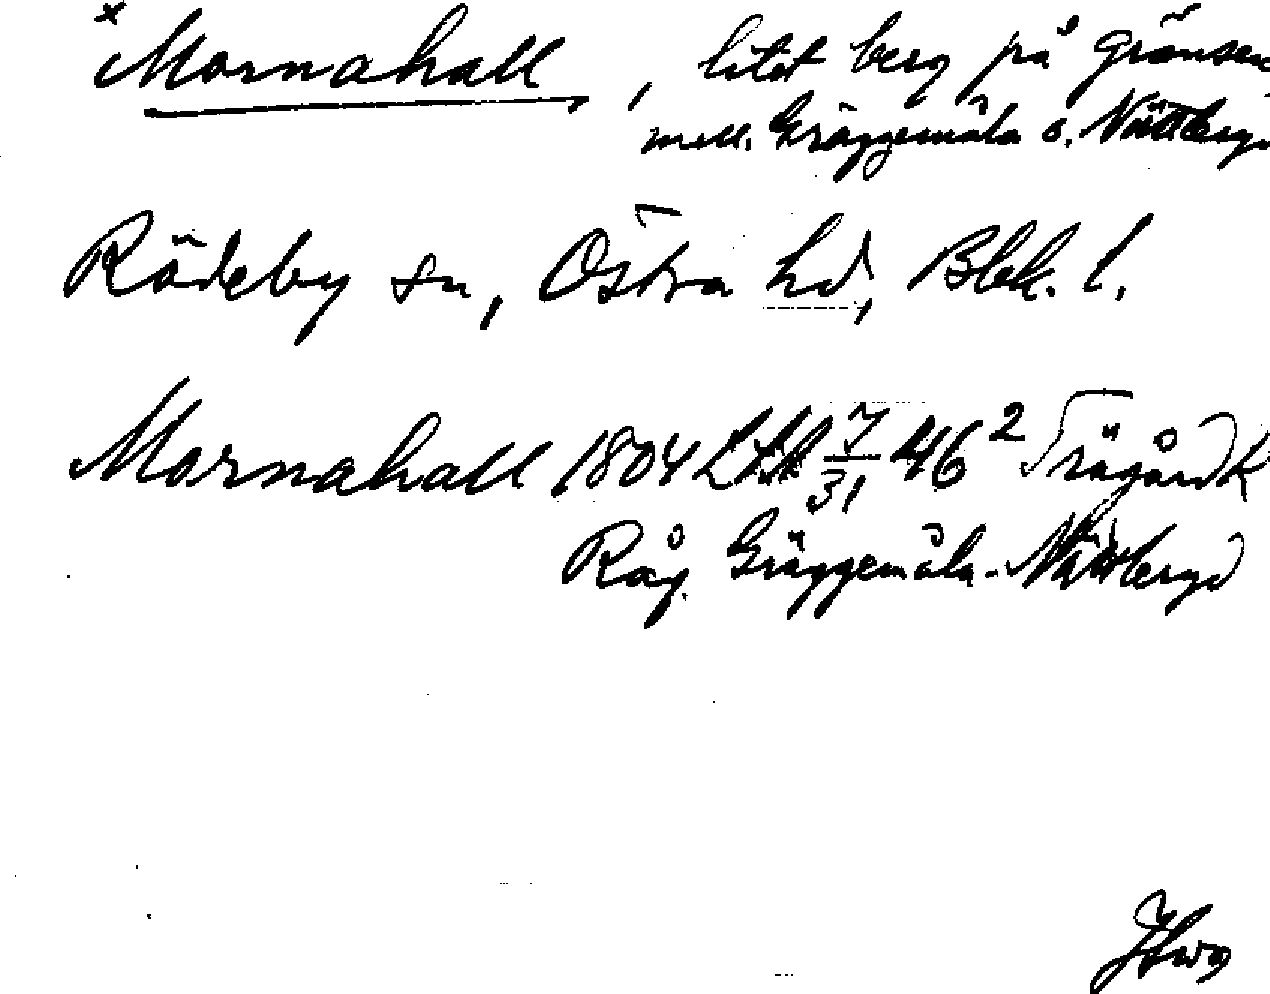 × Mornahall, litet berg på gränsen
mell. Gräggemåla o. Nättberg
Rödeby sn, Östra hd, Blek. l.
Mornahall 1804 LSA 7/31 46²
Råg. Gräggemåla - Nättberg